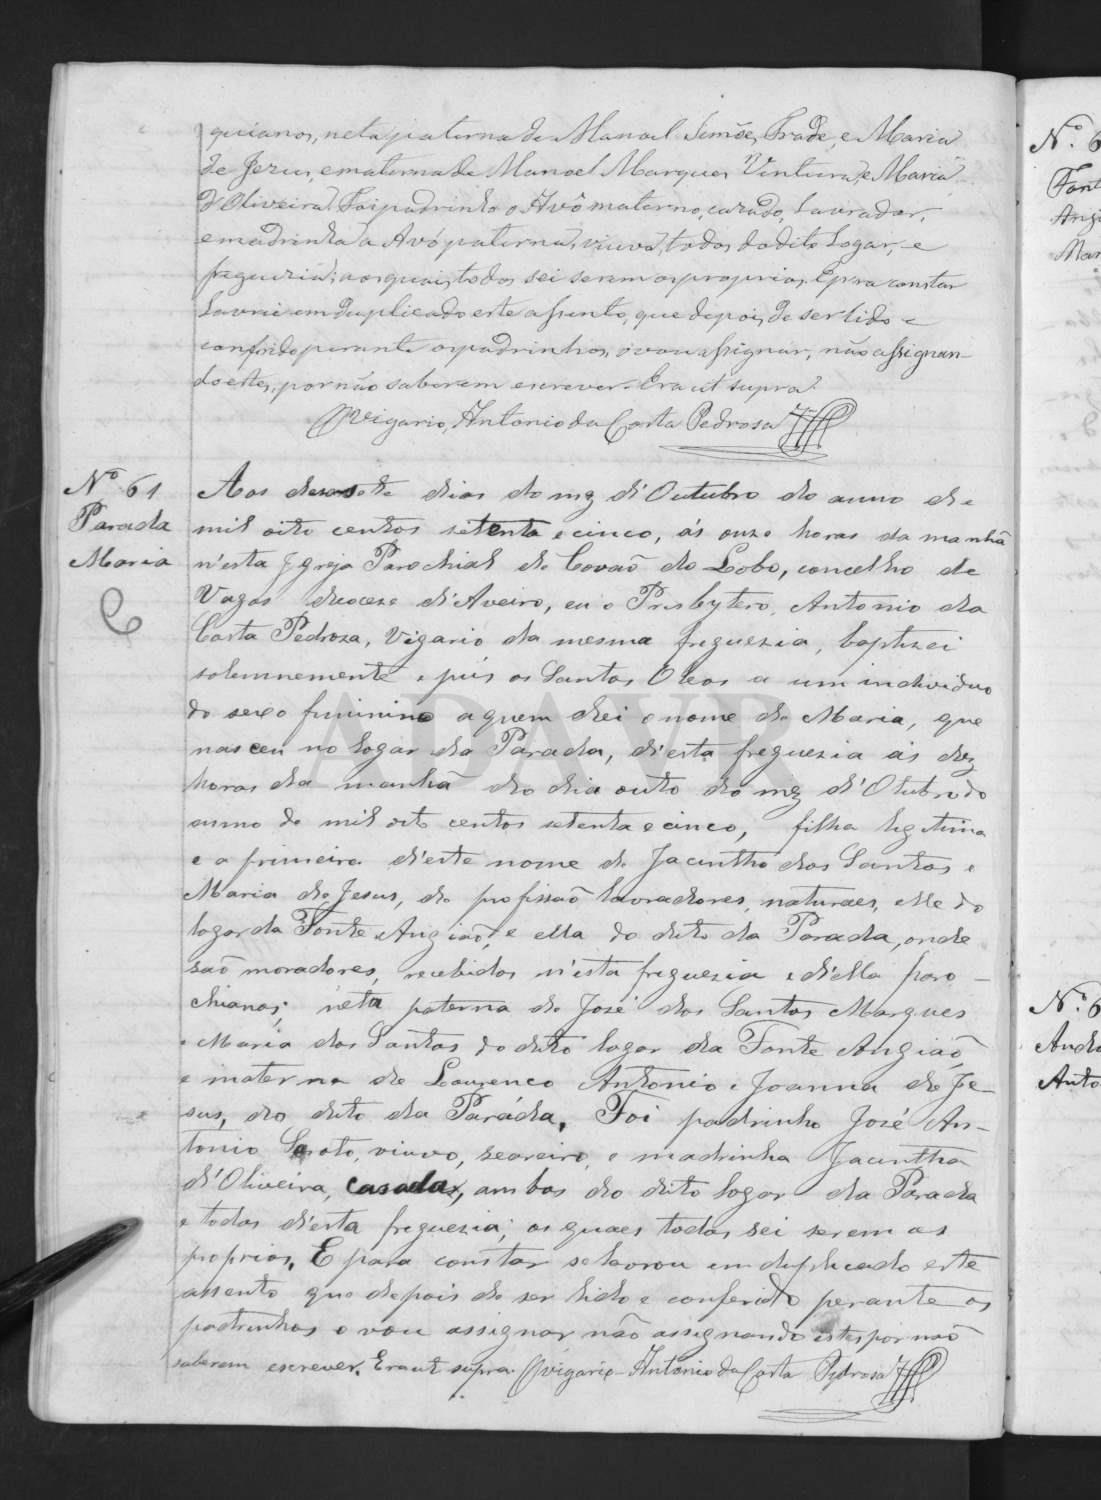 quianos, neta paterna de Manoel Simões Frade, e Maria
de Jezus, e materna de Manoel Marques Ventura, e Maria
d'Oliveira. Foi padrinho o Avô materno, cazado, Lavrador,
e madrinha a Avó paterna, viuva, todos do dito Logar, e
freguezia; aos quais todos sei serem os proprios. E para constar
Lavrei em duplicado este assento, que depois de ser lido e
conferido perante os padrinhos, o vou assignar, não assignan-
do estes, por não saberem escrever. Era ut supra.
O Vigario, Antonio da Costa Pedrosa
Nº 61
Parada
Maria
Aos desasete dias do mez d'Outubro do anno de
mil oito centos setenta e cinco, ás onze horas da manhã
n'esta Igreja Parochial de Covaõ do Lobo, concelho de
Vagos diocese d'Aveiro, eu o Presbytero, Antonio da
Costa Pedroza, Vigario da mesma freguezia, baptizei
solemnemente e puis os Santos Oleos a um individuo
do sexo feminino a quem dei o nome de Maria, que
nasceu no logar da Parada, d'esta freguezia ás dez
horas da manhã do dia outo do mez d'Otubro do
anno de mil oito centos setenta e cinco, filha legitima
e a primeira d'este nome de Jacintho dos Santos e
Maria de Jesus, de profissaõ lavradores, naturaes, elle do
logar da Fonte Angiaõ, e ella do dito da Parada, onde
saõ moradores, recebidos n'esta freguezia e d'ella paro-
chianos; neta paterna de José dos Santos Marques
e Maria dos Santos do dito logar da Fonte Angiaõ,
e materna de Lourenco Antonio e Joanna de Je-
sus, do dito da Paráda. Foi padrinho José An-
tonio, viuvo, seareiro, e madrinha Jacintha
d'Oliveira, casada, ambos do dito logar da Parada
e todos d'esta freguezia; os quaes todos sei serem os
proprios. E para constar se lavrou em duplicado este
assento que depois de ser lido e conferido perante os
padrinhos o vou assignar não assignando estes por não
saberem escrever. Era ut supra. O Vigario - Antonio da Costa Pedrosa
Nº 6
Font
Angi
Mar
Nº 6
Andr
Anto
ADAVR